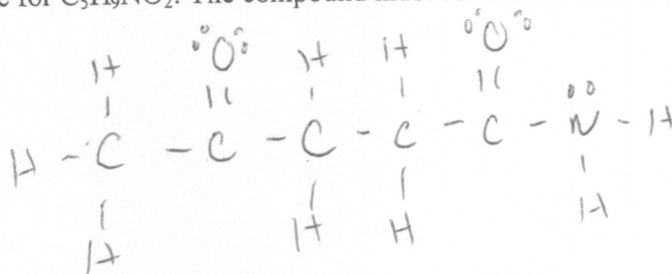 for C₅H₉NO₂. The compound
H :O: H H :O:
| || | | ||
H - C - C - C - C - C - N̈ - H
| | | |
H H H H